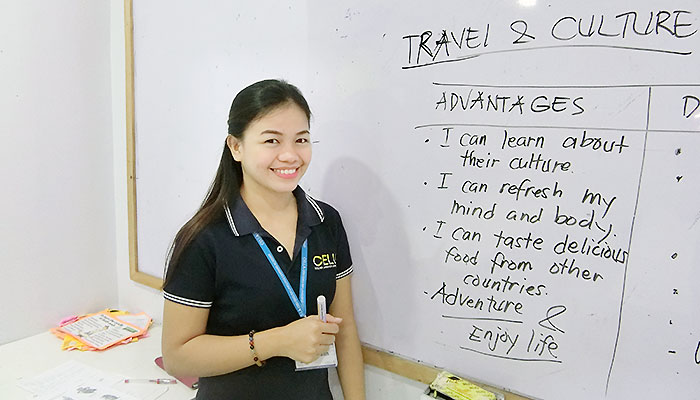 TRAVEL & CULTURE
ADVANTAGES
D
• I can learn about
their culture.
• I can refresh my
mind and body.
• I can taste delicious
food from other
countries.
• Adventure &
Enjoy life